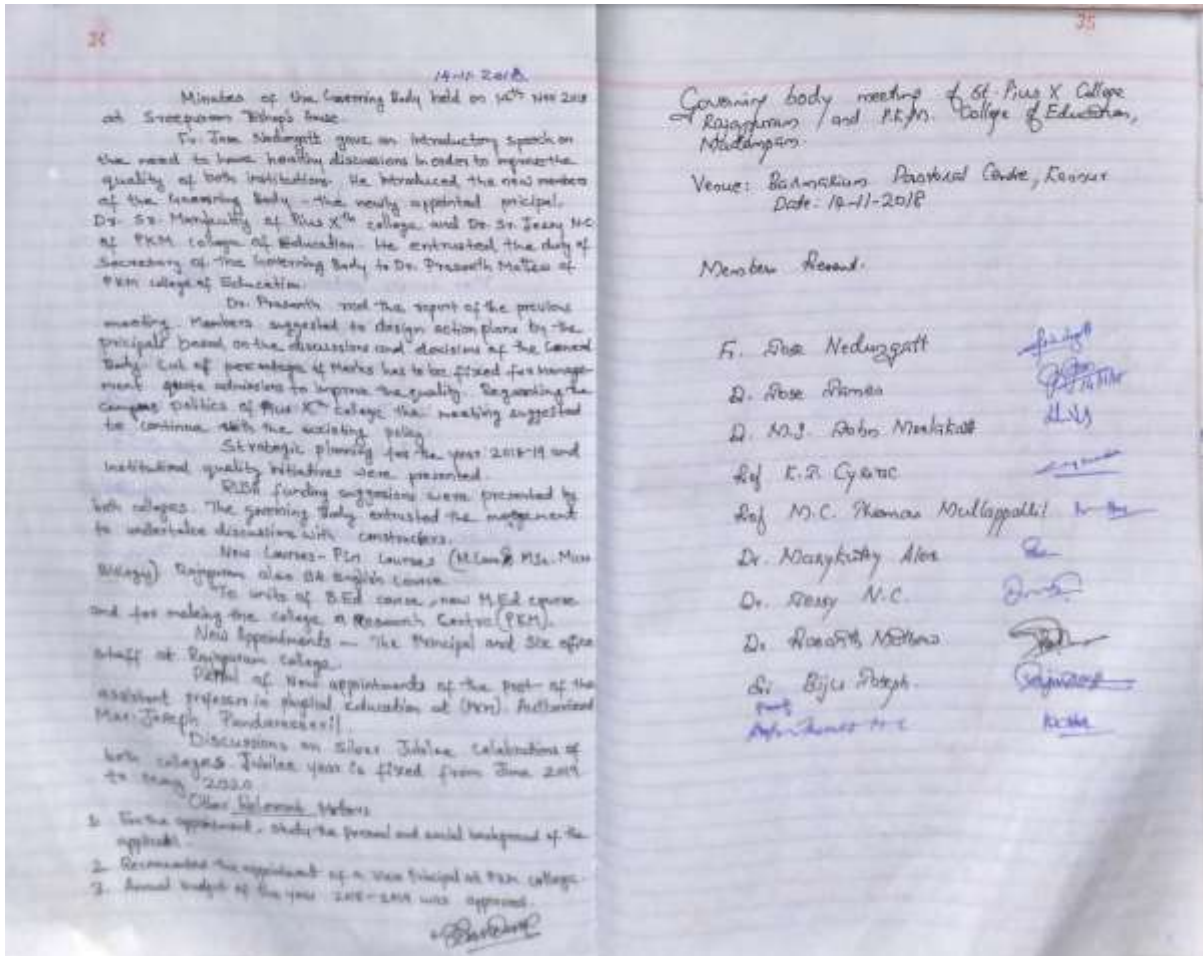 34
14-11-2018
Minutes of the Governing Body held on 14th Nov 2018
at Sreepuram Bishop's house
Fr. Jose Nedungatt gave an introductory speech on
the need to have healthy discussions in order to improve the
quality of both institutions. He introduced the new members
of the Governing Body - the newly appointed pricipal.
Dr. Sr. Marykutty of Pius Xth college and Dr. Sr. Jessy N.C
of PKM college of Education. He entrusted the duty of
Secretary of the Governing Body to Dr. Prasanth Mathew of
PKM college of Education.
Dr. Prasanth read the report of the previous
meeting. Members suggested to design action plans by the
principals based on the discussions and decisions of the General
Body. Cut of percentage of Marks has to be fixed for manage-
ment quota admissions to improve the quality. Regarding the
campus politics of Pius Xth college the meeting suggested
to continue with the existing policy.
Strategic planning for the year 2018-19 and
institutional quality initiatives were presented.
RUSA funding suggestions were presented by
both colleges. The governing Body entrusted the
to undertake discussions with
New Courses - P.G. Courses (M.Com & MSc. Micro
Biology) Rajapuram also BA English course
To units of B.Ed course, new M.Ed course
and for making the college a Research Centre (PKM).
New Appointments - The Principal and six office
staff at Rajapuram college.
of New appointments of the post of the
assistant professor in physical Education at (PKM). Authorized
Mar. Joseph Pandarasseril
Discussions on Silver Jubilee Celebrations of
both colleges. Jubilee year is fixed from June 2019
to May 2020
Other Relevant Matters
1. For the appointment, study the personal and social background of the
applicant.
2. Recommended the appointment of a vice Principal at PKM college.
3. Annual budget of the year 2018-2019 was approved.
35
Governing body meeting of St. Pius X College
Rajapuram and P.K.M. College of Education,
Madampam.
Venue: Barmariam Pastoral Centre, Kannur
Date: 14-11-2018
Members Present.
Fr. Jose Nedungatt
Dr. Jose James
14/11/18
Dr. M.J. John Manlakatt
Prof K.P. Cyriac
Prof M.C. Thomas Mullappallil
Dr. Marykutty Alex
Dr. Jessy N.C.
Dr. Prasanth Mathew
Sri Biju Joseph.
Prof
Thomas M.C